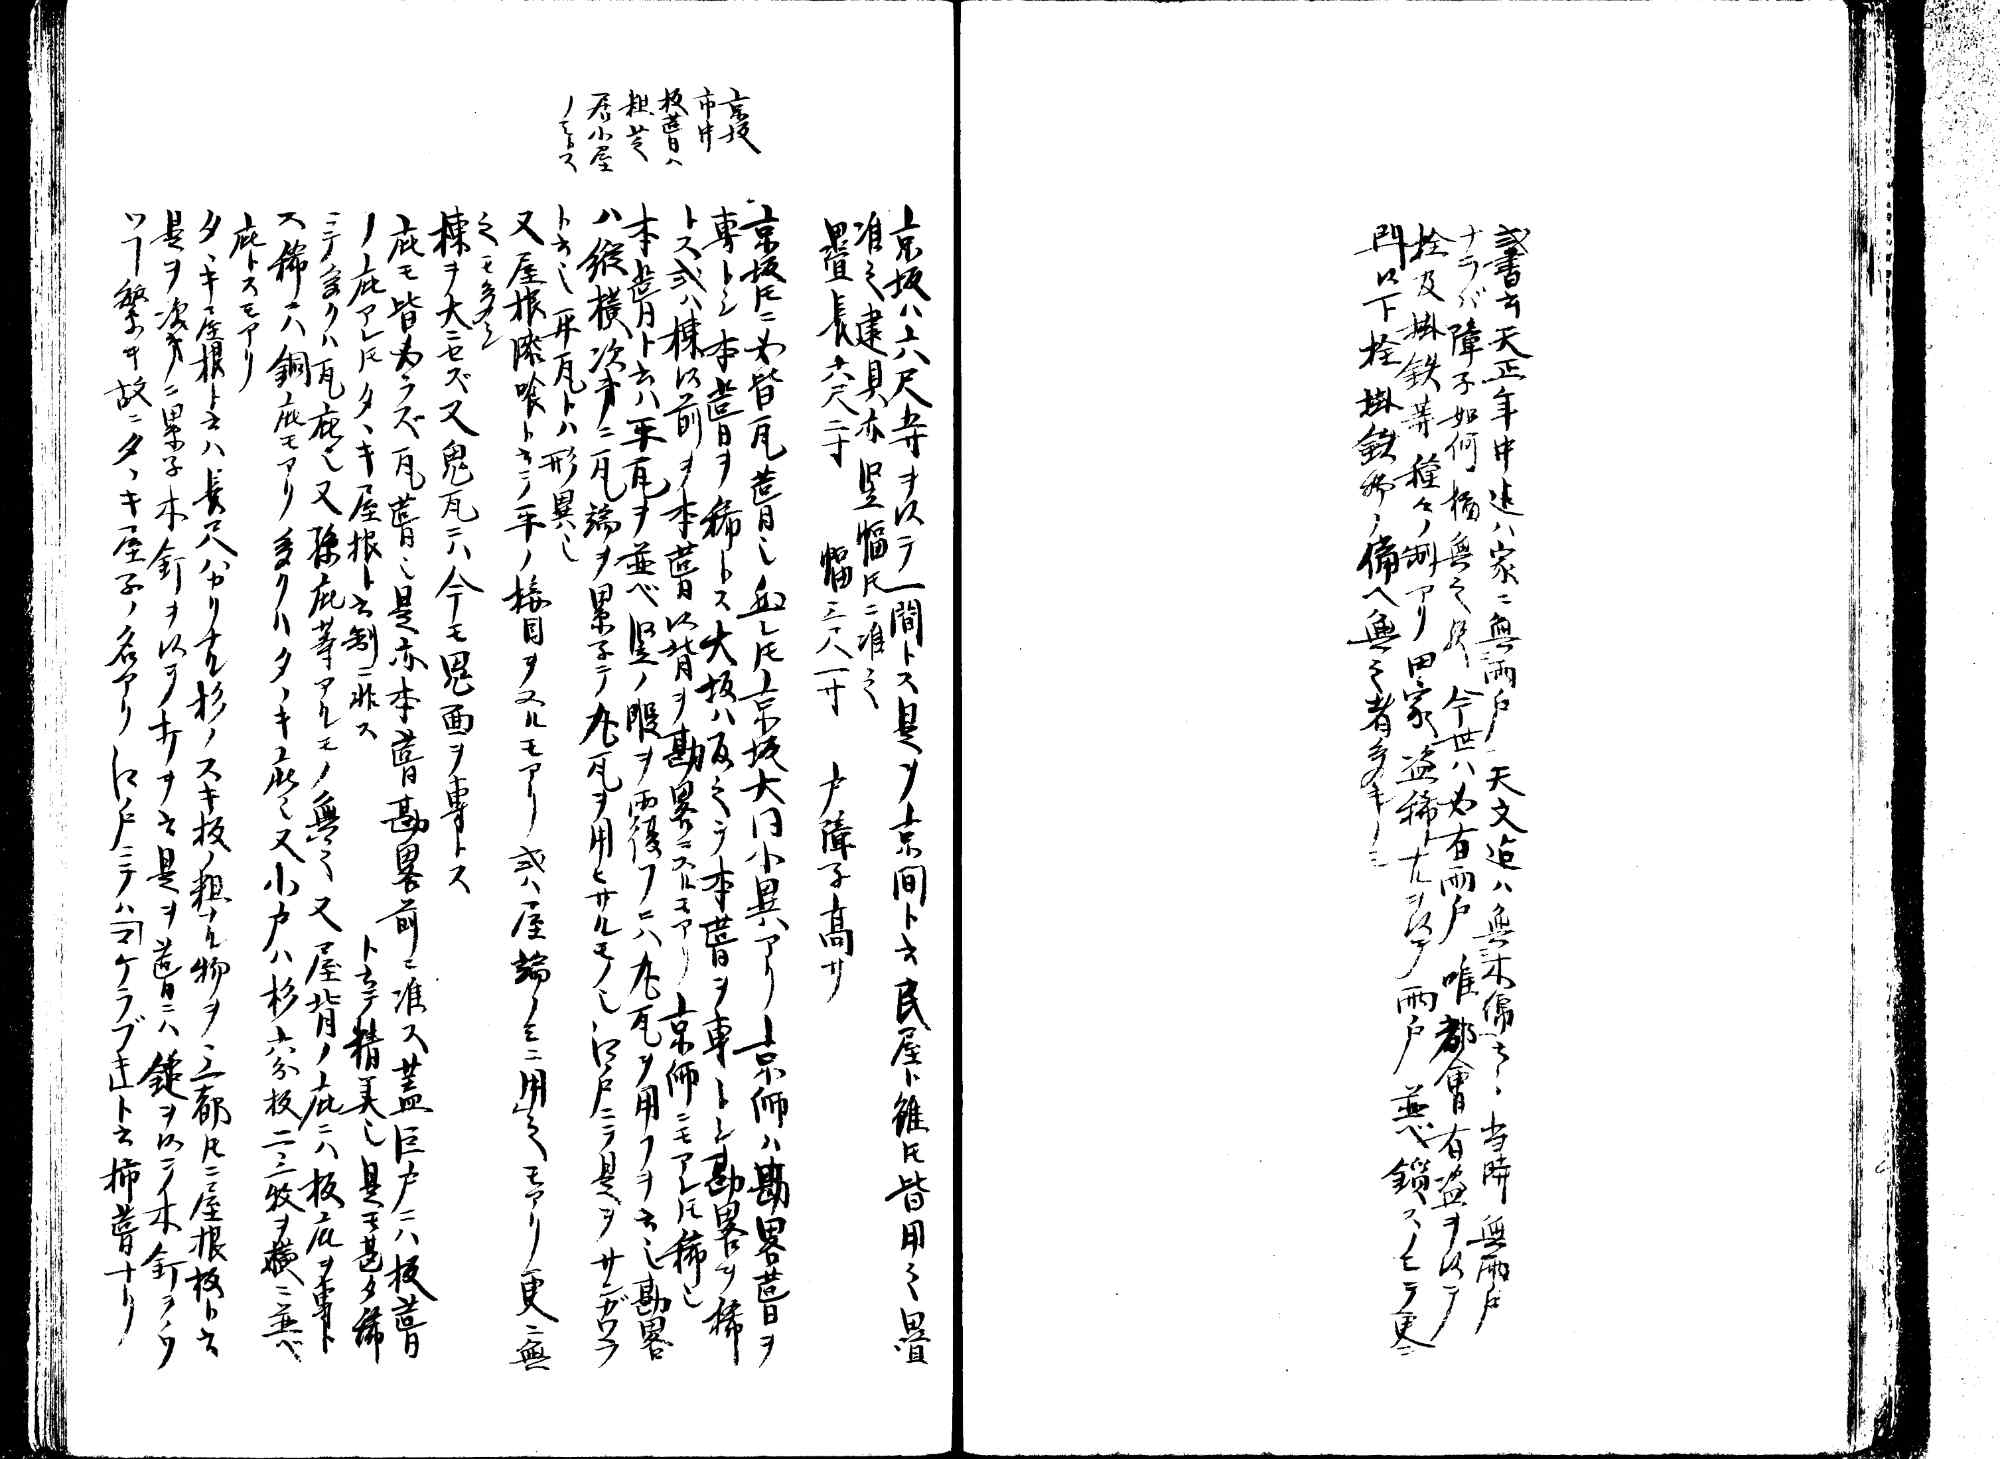 或書云天正年中迄ハ家ニ無雨戸天文迄ハ無木偏云々当時無雨戸
ナラバ障子如何橋無之歟今世ハ必有雨戸唯都會有盗ヲ以テ
栓及掛鉄等種々ノ制アリ田家盗稀ナルヲ以テ雨戸並ベ鎖スノミニテ更ニ
門以下栓掛鉄等ノ備ヘ無之者多キノミ
京坂ハ六尺五寸ヲ以テ一間トス是ヲ京間ト云民屋ト雖ドモ皆用之畳
准之建具亦竪幅トモニ准之
畳長六尺三寸 幅三尺一寸 戸障子高サ
京坂トモニ必皆瓦葺也然レドモ京坂大同小異アリ京師ハ勘畧葺ヲ
専トシ本葺ヲ稀トス大坂ハ反之テ本葺ヲ専トシ勘畧ヲ稀
トス或ハ棟以前ヲ本葺以背ヲ勘畧ニスルモアリ京師ニモアレドモ稀也
本葺ト云ハ平瓦ヲ並ベ竪ノ際ヲ覆フニハ丸瓦ヲ用フヲ云也勘畧
ハ縦横次第ニ瓦端ヲ累子テ丸瓦ヲ用ヒザルモノ也江戸ニテ是ヲサンガワラ
ト云也平瓦トハ形異也
又屋根漆喰ト云テ平ノ接目ヲヌルモアリ或ハ屋端ノミニ用之モアリ更ニ無
之モ多シ
棟ヲ大ニセズ又鬼瓦ニハ今モ鬼面ヲ専トス
庇モ皆必ラズ瓦葺也是亦本葺勘畧前ニ准ス蓋巨戸ニハ板葺
ノ庇アレドモタヽキ屋根ト云制ニ非ス ト云テ精美也是モ甚タ稀
ニテ多クハ瓦庇也又孫庇等アルモノ無之又屋背ノ庇ニハ板庇ヲ専ト
ス稀ニハ銅庇モアリ多クハタヽキ庇也又小戸ハ杉六分板二三枚ヲ横ニ並ベ
庇トスモアリ
タヽキ屋根ト云ハ長尺バカリナル杉ノスキ板ノ粗ナル物ヲ三都トモニ屋根板ト云
是ヲ次第ニ累子木釘ヲ以ヲ打ヲ云是ヲ葺ニハ鎚ヲ以テ木釘ヲウ
ツ⼁繁キ故ニタヽキ屋子ノ名アリ江戸ニテハコケラブキト云柿葺ナリ
京坂
市中
板葺ハ
粗芝
居小屋
ノミトス